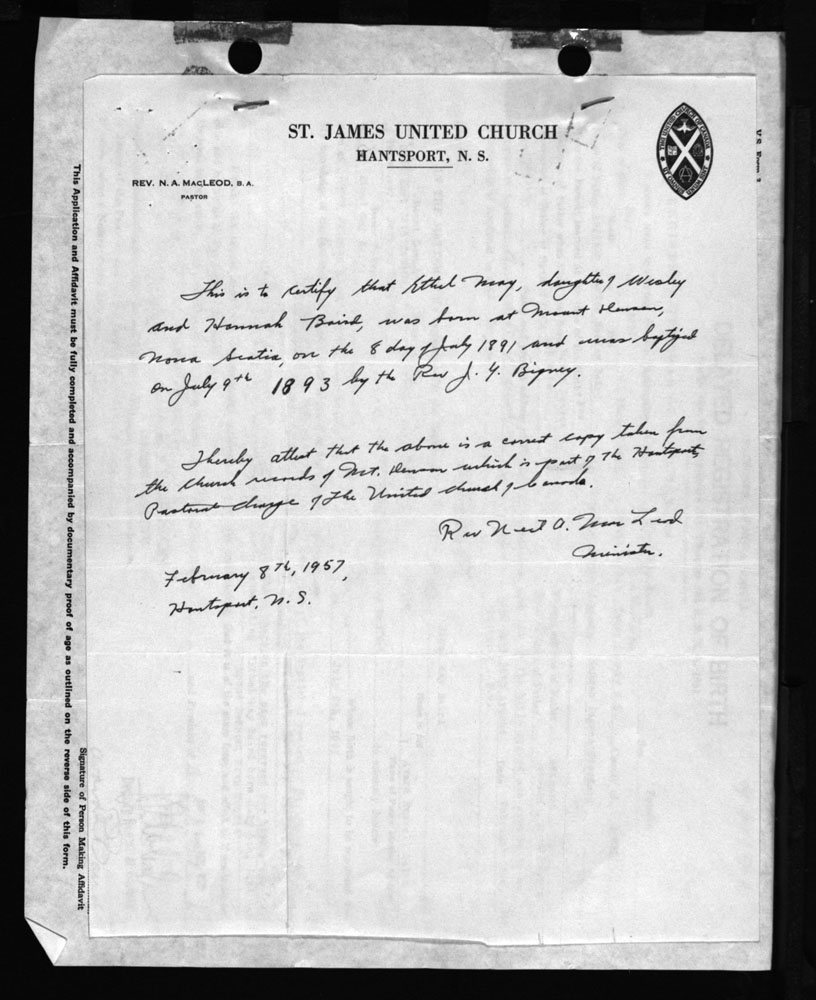 ST. JAMES UNITED CHURCH
HANTSPORT, N. S.
REV. N. A. MACLEOD, B. A.
PASTOR
This is to certify that Ethel May, daughter of Wesley
and Hannah Baird, was born at Mount Denson,
Nova Scotia, on the 8 day of July 1891 and was baptized
on July 9th 1893 by the Rev J. Y. Bigney.
I hereby attest that the above is a correct copy taken from
the church records of Mt. Denson which is part of the Hantsport
Pastoral Charge of the United Church of Canada.
Rev Neil A. MacLeod
Minister.
February 8th, 1957,
Hantsport, N. S.
This Application and Affidavit must be fully completed and accompanied by documentary proof of age as outlined on the reverse side of this form.
Signature of Person Making Affidavit